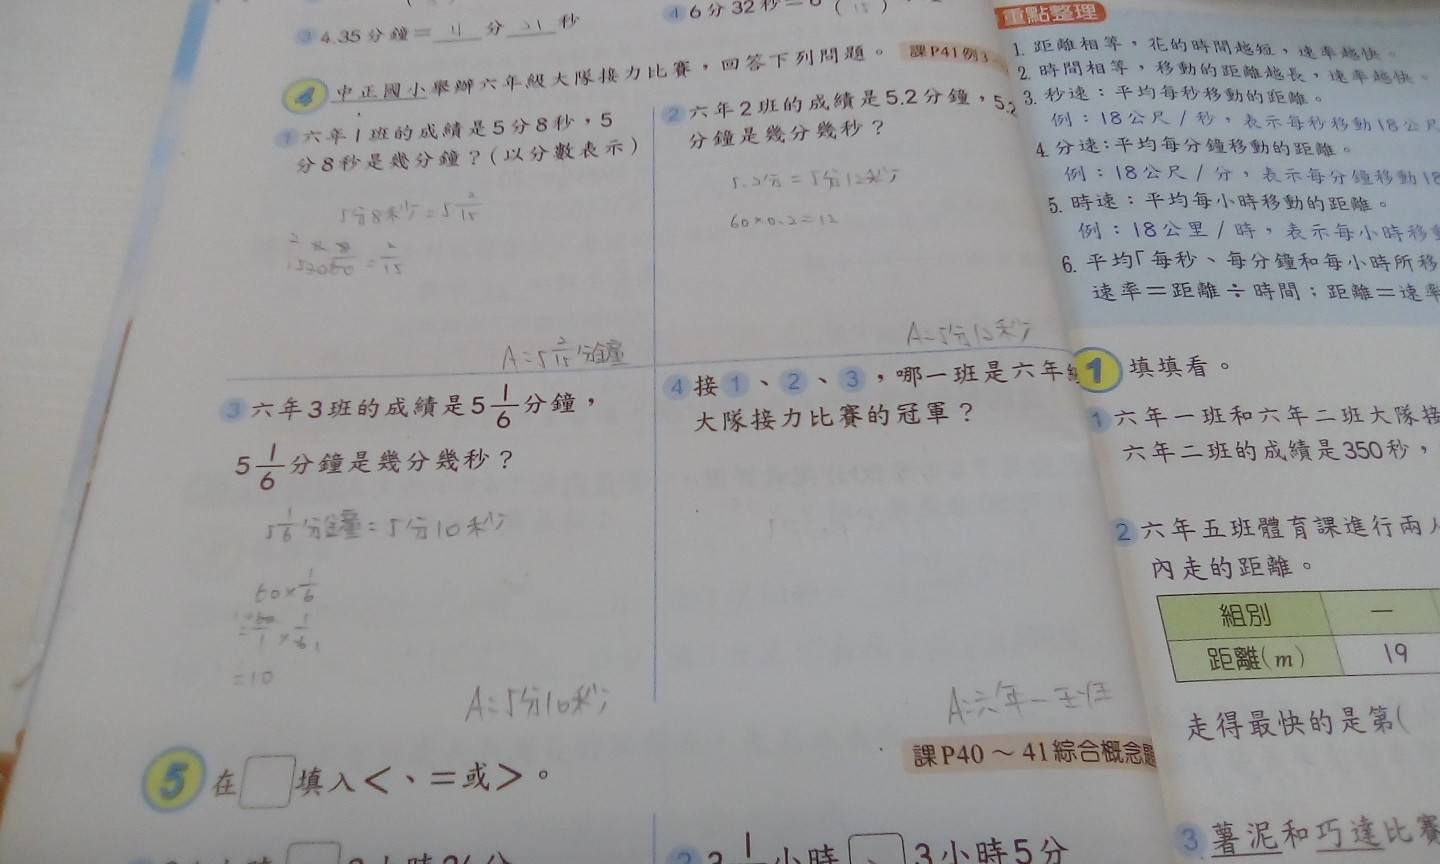 3 4.35分鐘=11分21秒
4 6分32秒=6
4 中正國小舉辦六年級大隊接力比賽,回答下列問題。 課P41例3
1 六年1班的成績是5分8秒,5
分8秒是幾分鐘?(以分數表示)
5分8秒=5 2/15
8/60=2/15
A:5 2/15分鐘
2 六年2班的成績是5.2分鐘,5.2
分鐘是幾分幾秒?
5.2分=5分12秒
60×0.2=12
A:5分12秒
3 六年3班的成績是5 1/6分鐘,
5 1/6分鐘是幾分幾秒?
5 1/6分鐘=5分10秒
60×1/6
=60/1×1/6
=10
A:5分10秒
4 接1、2、3,哪一班是六年級
大隊接力比賽的冠軍?
A:六年一班
課P40~41綜合概念題
5 在□填入<、=或>。
3小時5分
重點整理
1. 距離相等,花的時間越短,速率越快。
2. 時間相等,移動的距離越長,速率越快。
3. 秒速:平均每秒移動的距離。
例:18公尺/秒,表示每秒移動18公尺
4. 分速:平均每分鐘移動的距離。
例:18公尺/分,表示每分鐘移動18
5. 時速:平均每小時移動的距離。
例:18公里/時,表示每小時移動
6. 平均「每秒、每分鐘和每小時所移
速率=距離÷時間;距離=速率
1 填填看。
1 六年一班和六年二班大隊接
六年二班的成績是350秒,
2 六年五班體育課進行兩人
內走的距離。
組別 一
距離(m) 19
走得最快的是第(
3 薯泥和巧達比賽